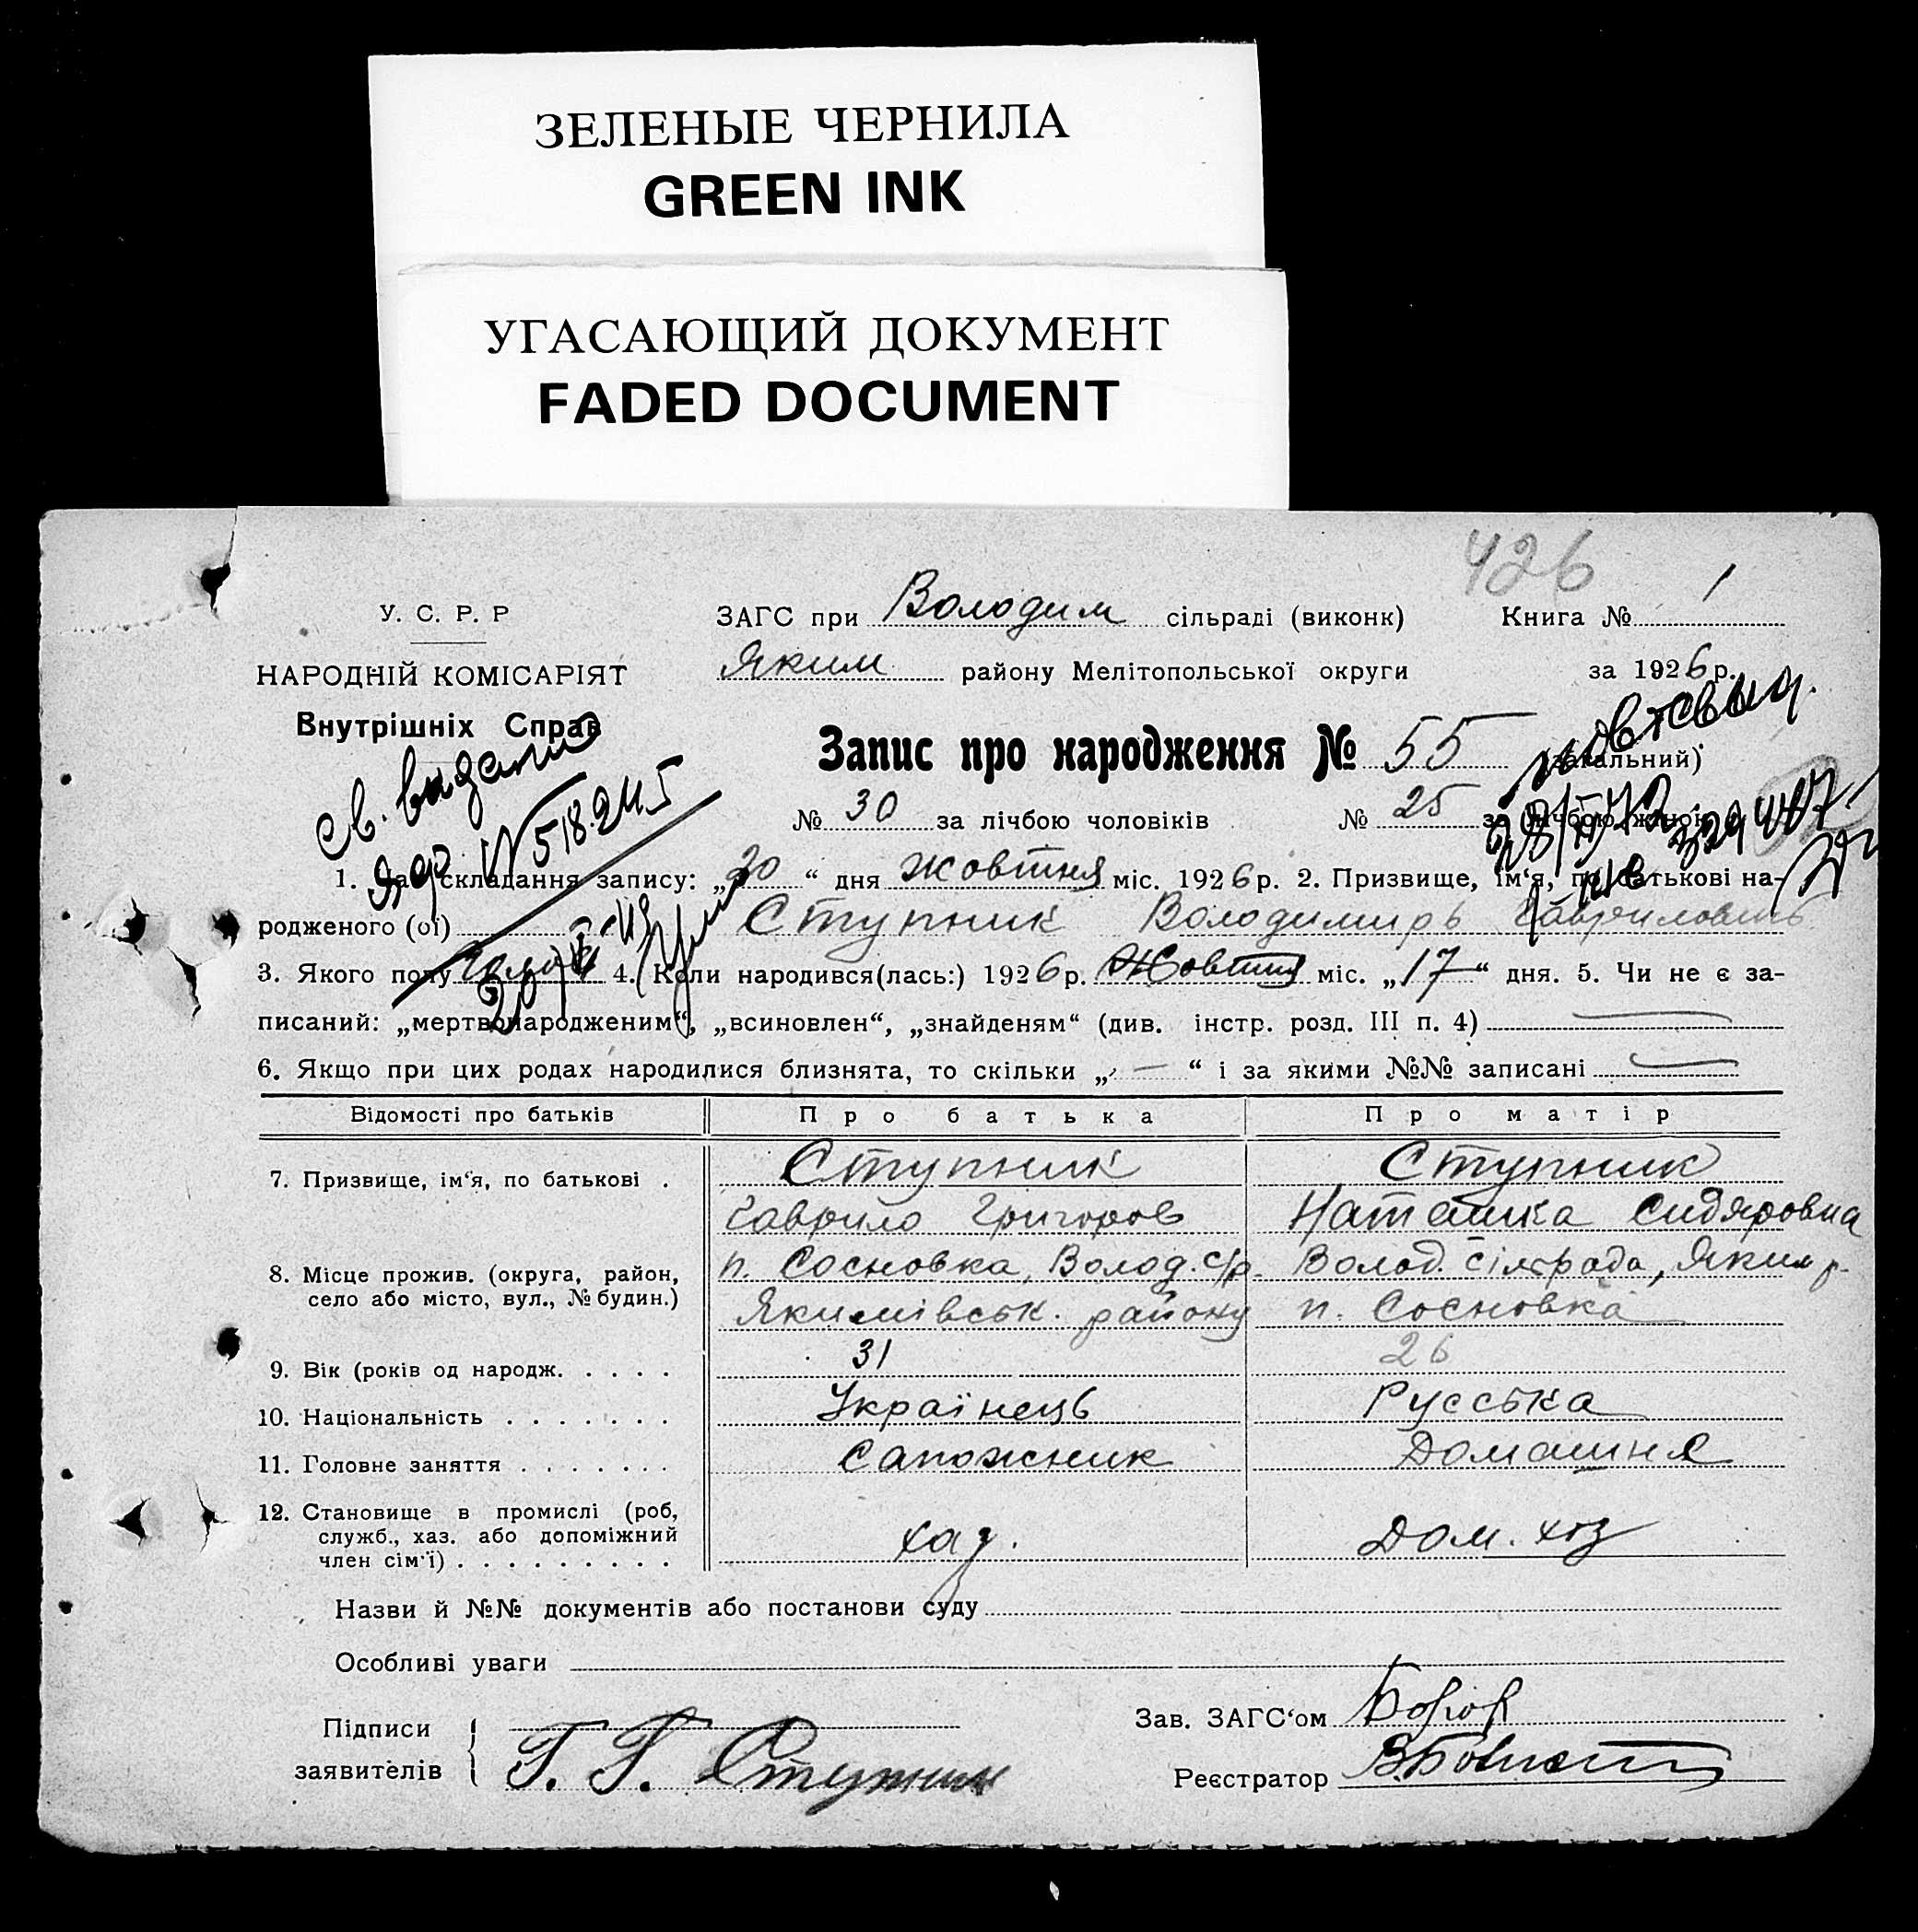 ЗЕЛЕНЫЕ ЧЕРНИЛА
GREEN INK
УГАСАЮЩИЙ ДОКУМЕНТ
FADED DOCUMENT
426
У. С. Р. Р
ЗАГС при Володим сільраді (виконк)
Книга № 1
НАРОДНІЙ КОМІСАРІЯТ
Яким районy Мелітопольської округи
за 1926 р.
Внутрішніх Справ
Запис про народження № 55 (загальний)
св. видано
№ 30 за лічбою чоловіків № 25 за лічбою жінок
1. Дата складання запису: „30“ дня жовтня міс. 1926 р. 2. Призвище, ім‘я, по батькові на-
родженого (ої) Ступник Володимирь Гаврилович
3. Якого полу 4. Коли народився(лась:) 1926 р. Жовтня міс. „17“ дня. 5. Чи не є за-
писаний: „мертвонародженим“, „всиновлен“, „знайденям“ (див. інстр. розд. III п. 4) —
6. Якщо при цих родах народилися близнята, то скільки „—“ і за якими №№ записані —
Відомості про батьків Про батька Про матір
7. Призвище, ім‘я, по батькові . Ступник Ступник
Гаврило Григоров Наташка
8. Місце прожив. (округа, район, п. Сосновка, Волод. с/р. Волод. сільрада, Яким р.
село або місто, вул., № будин.) Якимівськ. району п. Сосновка
9. Вік (років од народж. . . . . 31 26
10. Національність . . . . . . . Українець Русська
11. Головне заняття . . . . . . . Сапожник Домашня
12. Становище в промислі (роб, служб., хаз. або допоміжний член сім‘ї) . . . . . . . . . хаз. Дом. хоз
Назви й №№ документів або постанови суду
Особливі уваги
Підписи
заявителів Г. Г. Ступник
Зав. ЗАГС‘ом
Реєстратор